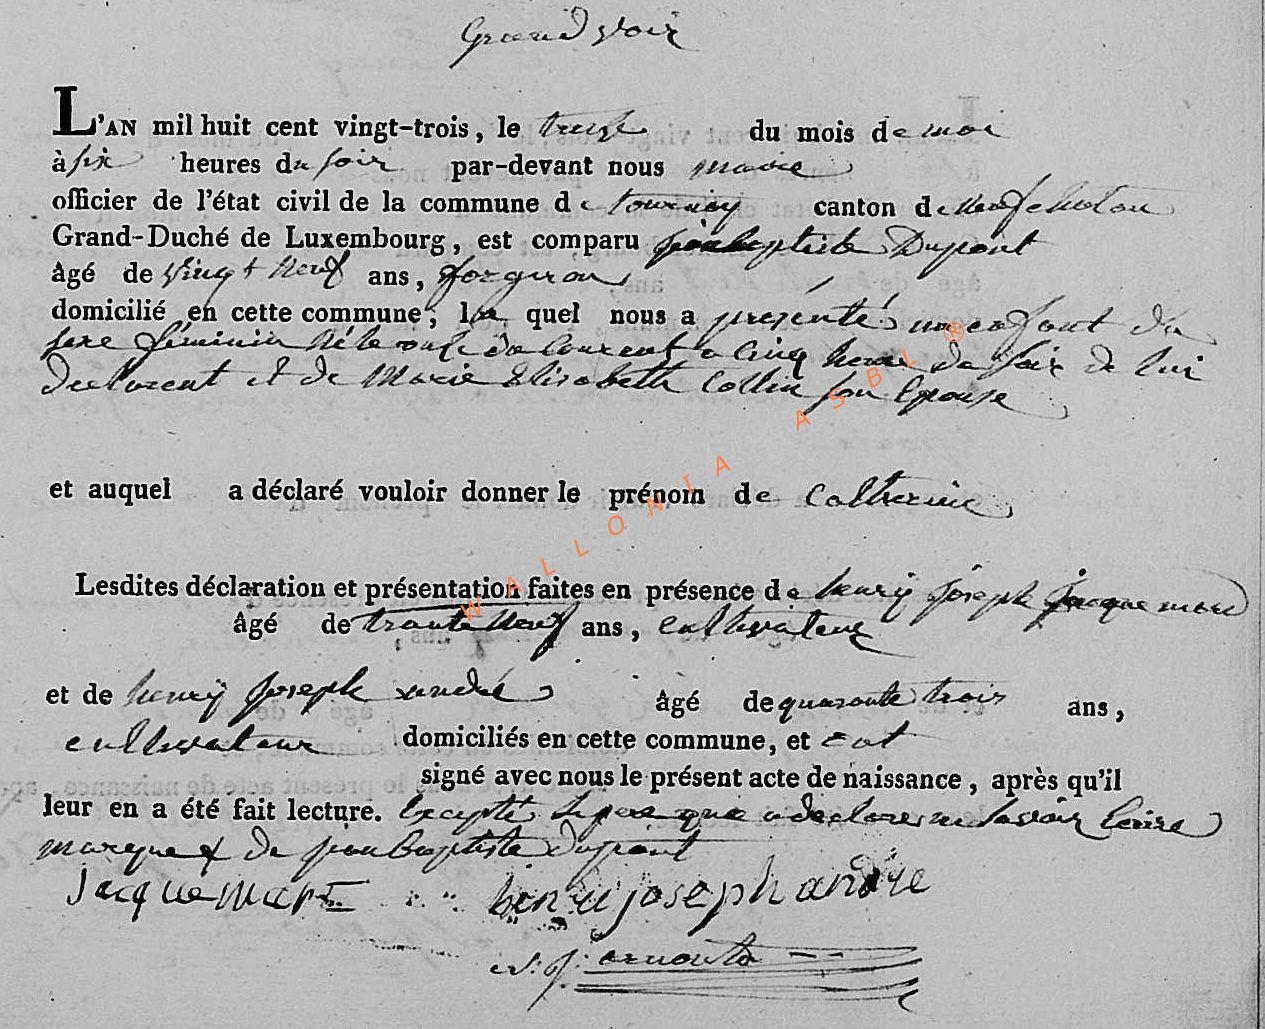 Grandvoir
L'AN mil huit cent vingt-trois, le treize du mois de mai
à six heures du soir par-devant nous maire
officier de l'état civil de la commune de tournay canton de neufchateau
Grand-Duché de Luxembourg, est comparu jeanbaptiste Dupont
âgé de vingt neuf ans, forgeron
domicilié en cette commune; lequel nous a présenté un enfant du
sexe féminin né le onze du courent a cinq heure du soir de lui
declarent et de Marie Elisabeth Collin son Epouse
et auquel a déclaré vouloir donner le prénom de Catherine
Lesdites déclaration et présentation faites en présence de henry joseph jacquemart
âgé de trante neuf ans, cultivateur
et de henry joseph andré âgé de quarante trois ans,
cultivateur domiciliés en cette commune, et ont
signé avec nous le présent acte de naissance, après qu'il
leur en a été fait lecture. Excepté le pere que a declare ne savoir Ecrire
marque x de jeanbaptiste dupont
jacquemart henri joseph andre
arnould
WALLONIA ASBL ®